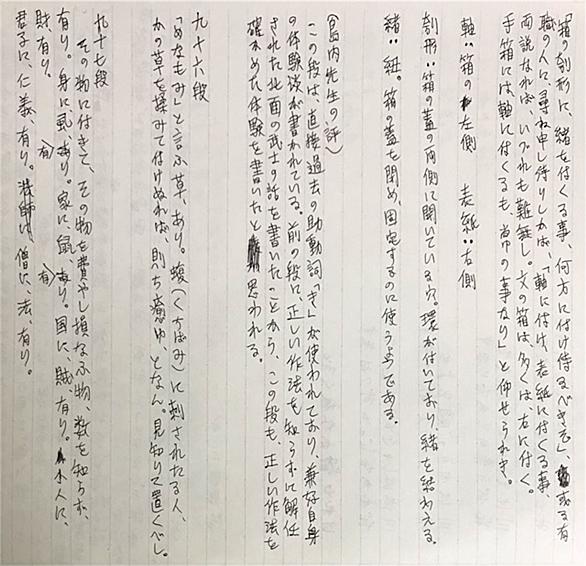 「箱の刳形に、緒を付くる事、何方に付け侍るべきぞ」、或る有
職の人に、尋ね申し侍りしかば、「軸に付け、表紙に付くる事、
両説なれば、いづれも難無し。文の箱は、多くは、右に付く。
手箱には、軸に付くるも、常の事なり」と仰せられき。
軸:箱の左側 表紙:右側
刳形:箱の蓋の両側に開いている穴。環が付いており、緒を結わえる。
緒:紐。箱の蓋を閉め、固定するのに使うようである。
(島内先生の評)
この段は、直接過去の助動詞「き」が使われており、兼好自身
の体験談が書かれている。前の段に、正しい作法を知らずに解任
された北面の武士の話を書いたことから、この段も、正しい作法を
確かめた体験を書いたと思われる。
九十六段
「めなもみ」と言ふ草、あり。蝮(くちばみ)に刺されたる人、
かの草を揉みて付けぬれば、則ち癒ゆ、となん。見知りて置くべし。
九十七段
その物に付きて、その物を費やし損なふ物、数を知らず、
有り。身に虱有り。家に、鼠有り。国に、賊、有り。小人に、
財、有り。
君子に、仁義、有り。僧に、法、有り。